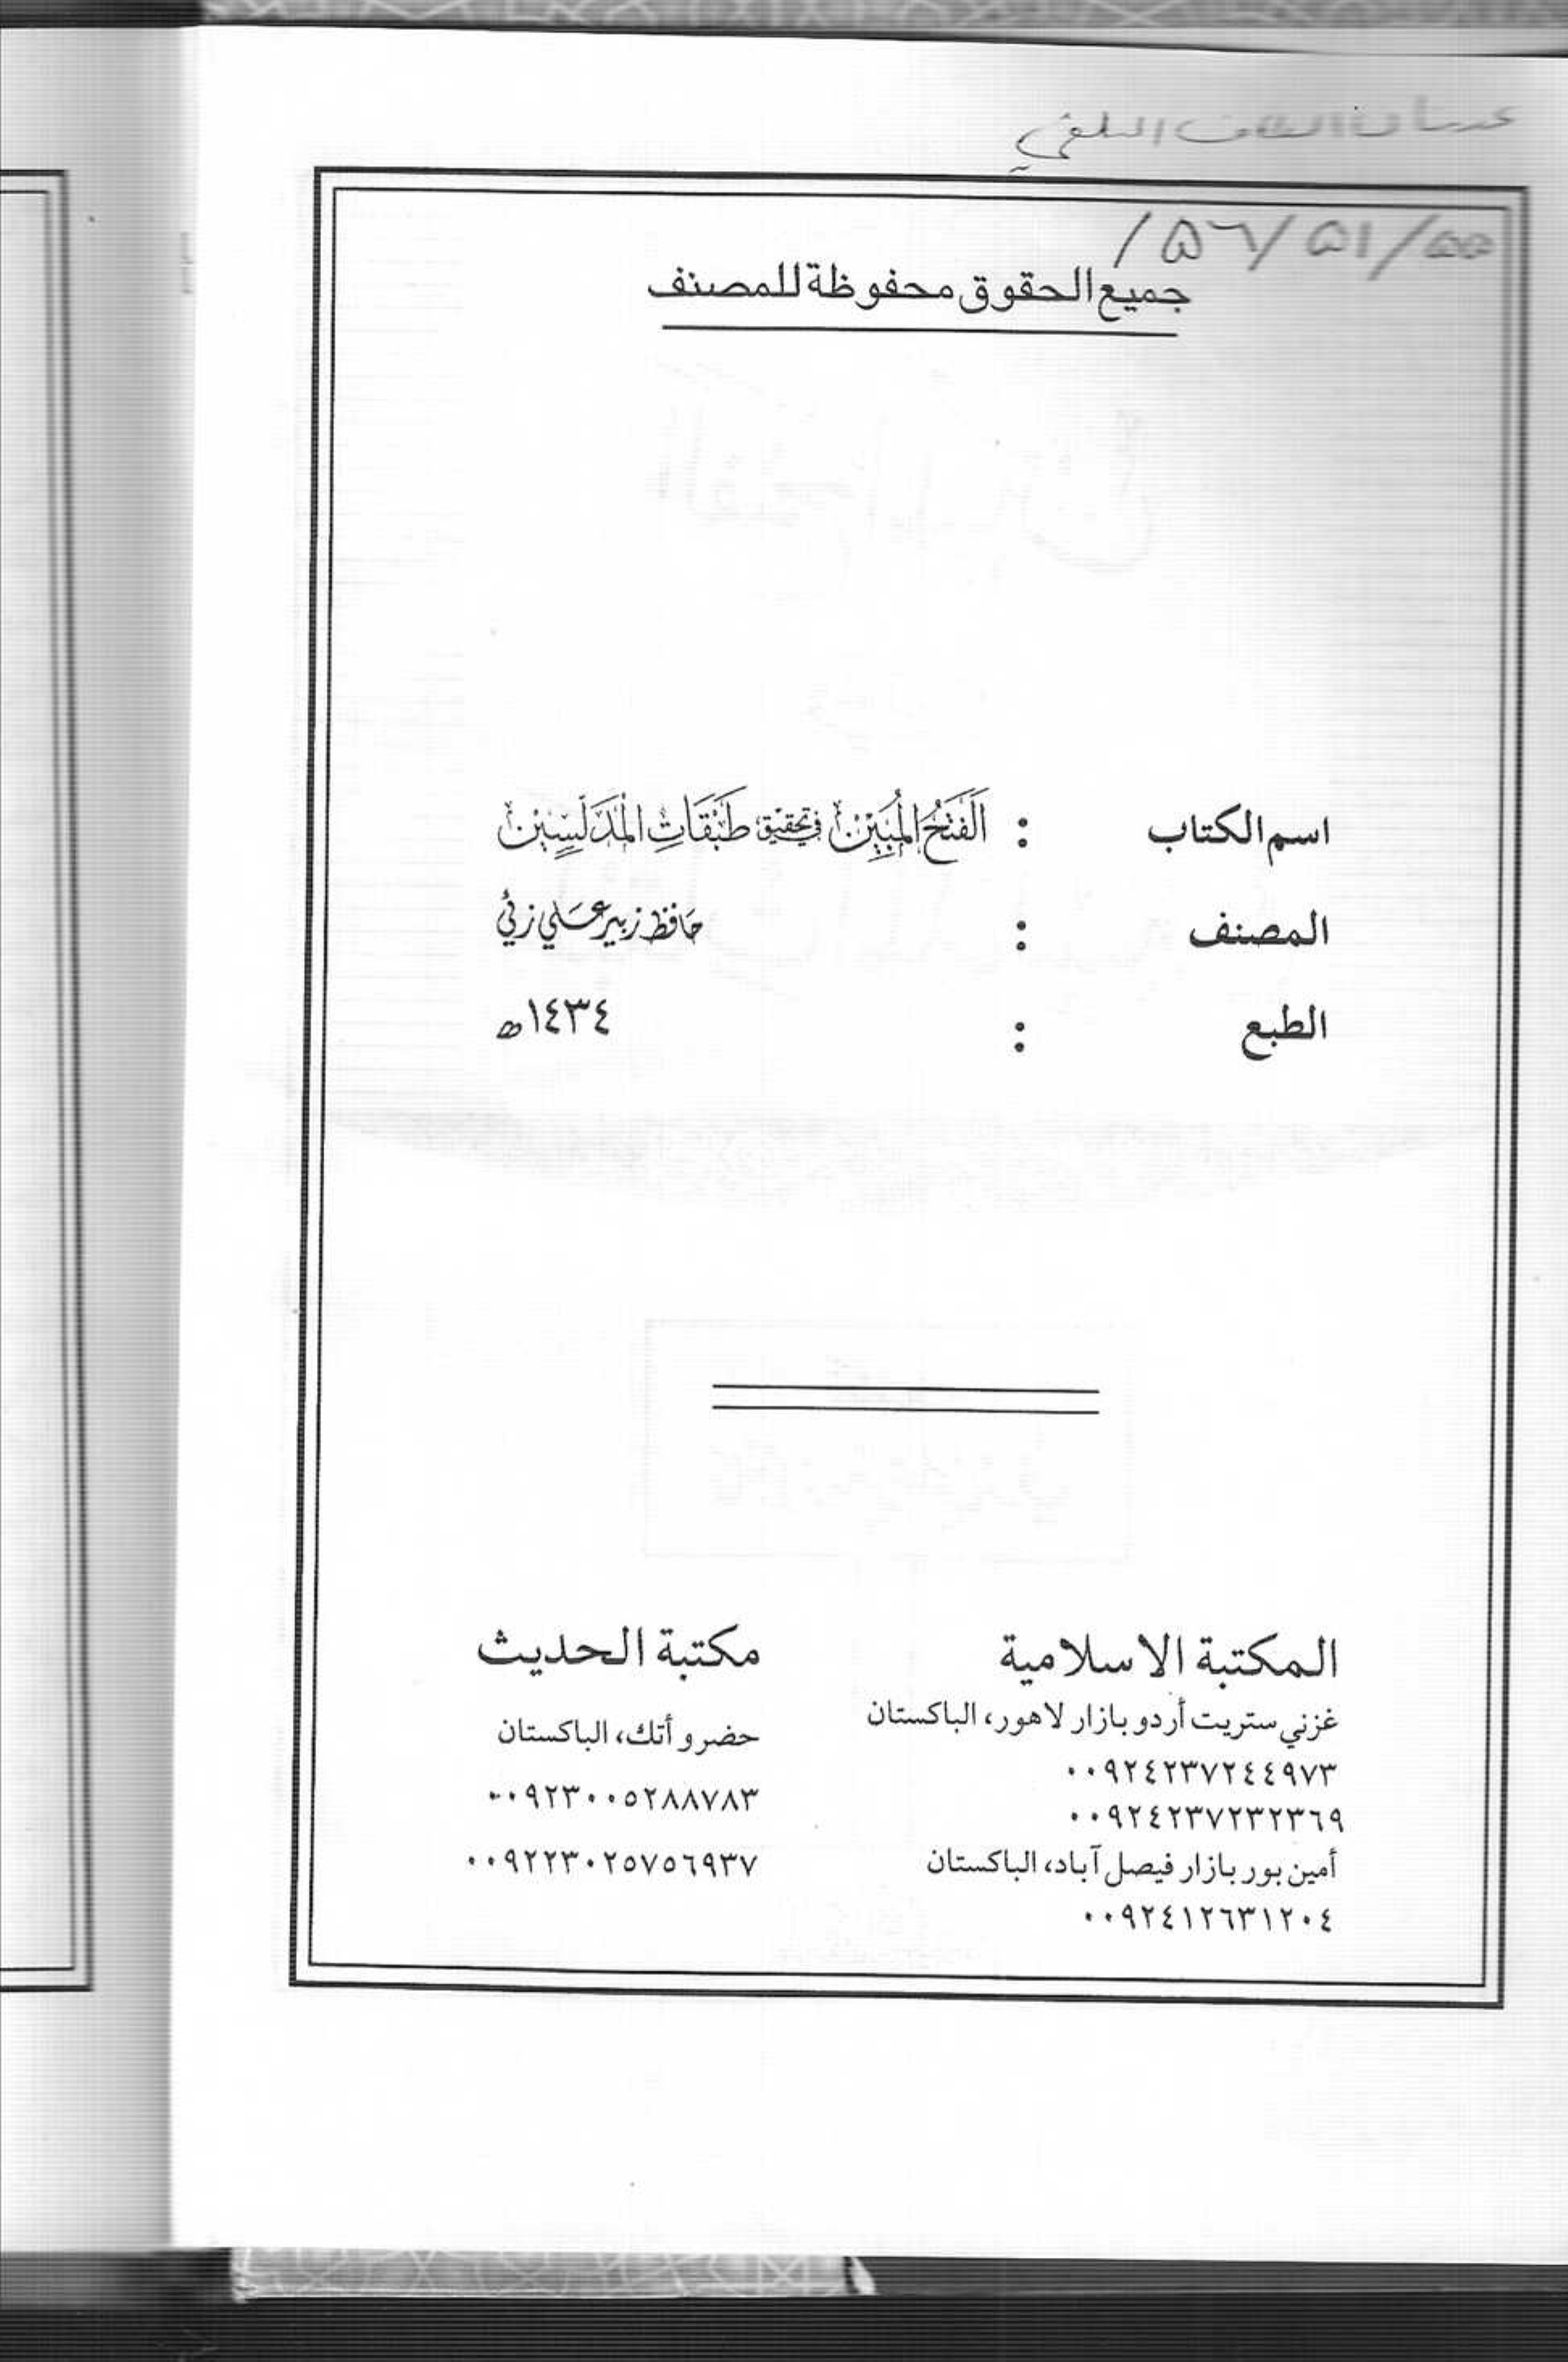 جميع الحقوق محفوظة للمصنف
اسم الكتاب : اَلْفَتْحُ الْمُبِيْن في تحقيق طَبَقَاتِ الْمُدَلِّسِيْن
المصنف : حافظ زبير علي زئي
الطبع : ١٤٣٤ه
المكتبة الاسلامية
غزني ستريت أردو بازار لاهور، الباكستان
٠٠٩٢٤٢٣٧٢٤٤٩٧٣
٠٠٩٢٤٢٣٧٢٣٢٣٦٩
أمين بور بازار فيصل آباد، الباكستان
٠٠٩٢٤١٢٦٣١٢٠٤
مكتبة الحديث
حضرو أتك، الباكستان
٠٠٩٢٣٠٠٥٢٨٨٧٨٣
٠٠٩٢٢٣٠٢٥٧٥٦٩٣٧